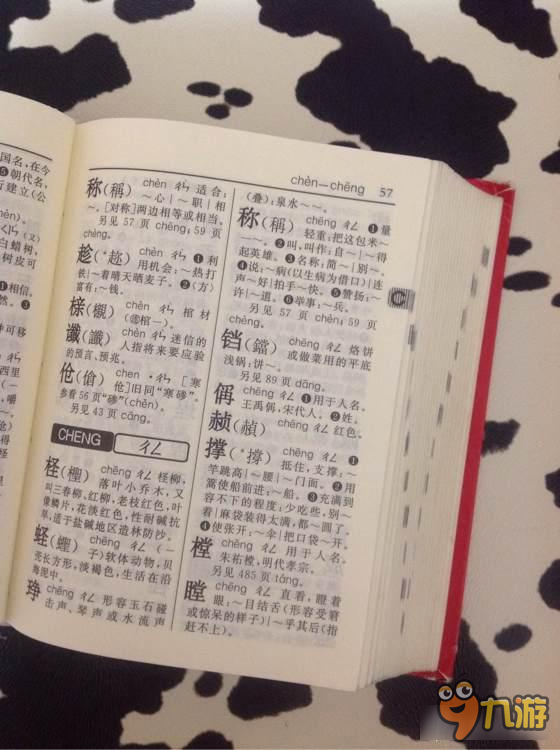 国名,在今
❺朝代名,
建立(公
chèn—chēng 57
称(稱) chèn ㄔㄣˋ 适合:
~心|~职|相
~。[对称]两边相等或相当。
另见 57 页 chēng; 59
页 chèng。
趁(*趂) chèn ㄔㄣˋ ❶利
用机会:~热打
铁|~着晴天晒麦子。❷〈方〉
富有:~钱。
榇(櫬) chèn ㄔㄣˋ 棺材
谶(讖) chèn ㄔㄣˋ 迷信的
人指将来要应验
的预言、预兆。
伧(傖) chen ·ㄔㄣ [寒
伧]旧同“寒碜”。
参看 56 页“碜”(chěn)。
另见 43 页 cāng。
CHENG ㄔㄥ
柽(檉) chēng ㄔㄥ 柽柳,
落叶小乔木,又
叫三春柳、红柳,老枝红色,叶
像鳞片,花淡红色,性耐碱抗
旱,适于盐碱地区造林防沙。
蛏(蟶) chēng ㄔㄥ (—
子)软体动物,贝
壳长方形,淡褐色,生活在沿
海泥中。
琤 chēng ㄔㄥ 形容玉石碰
击声、琴声或水流声
(叠):泉水~~。
称(稱) chēng ㄔㄥ ❶量
轻重:把这包米~
一~。❷叫,叫作:自~|~得
起英雄。❸名称:简~|别~。
❹说:~病(以生病为借口)|连
声~好|拍手~快。❺赞扬:~
许|~道。❻举事:~兵。
另见 57 页 chèn; 59 页
chèng。
铛(鐺) chēng ㄔㄥ 烙饼
或做菜用的平底
浅锅:饼~。
另见 89 页 dāng。
偁 chēng ㄔㄥ ❶用于人名。
王禹偁,宋代人。❷姓。
赪(赬) chēng ㄔㄥ 红色。
撑(*撐) chēng ㄔㄥ ❶
抵住,支撑:~
竿跳高|~腰|~门面。❷用
篙使船前进:~船。❸充满到
容不下的程度:少吃些,别~
着|麻袋装得太满,都~圆了。
❹使张开:~伞|把口袋~开。
樘 chēng ㄔㄥ 用于人名。
朱祐樘,明代孝宗。
另见 485 页 táng。
瞠 chēng ㄔㄥ 直看,瞪着
眼:~目结舌(形容受窘
或惊呆的样子)|~乎其后(指
赶不上)。
C
九游